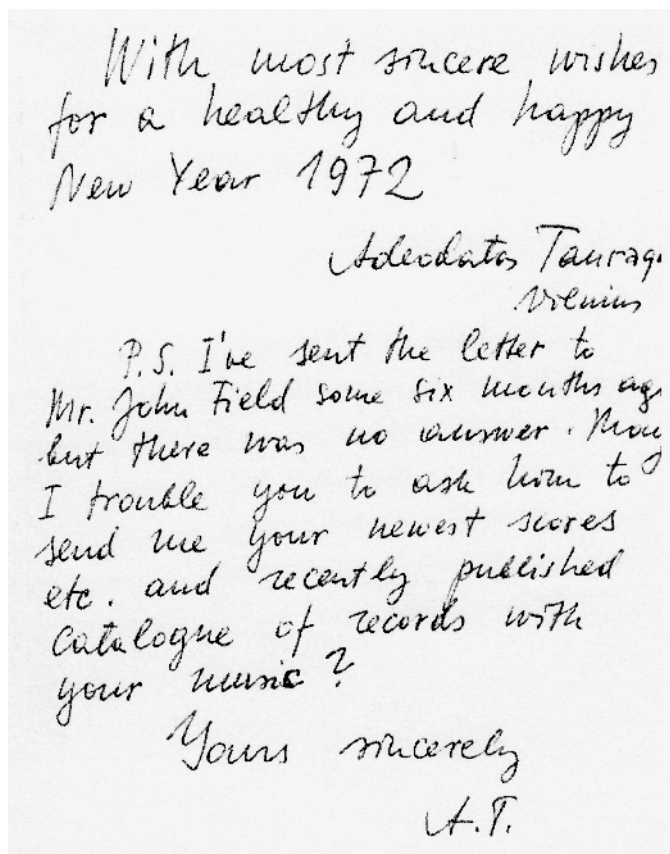 With most sincere wishes
for a healthy and happy
New Year 1972
Adeodatas Taurag
Vilnius
P.S. I've sent the letter to
Mr. John Field some six months ag
but there was no answer. May
I trouble you to ask him to
send me your newest scores
etc. and recently published
catalogue of records with
your music?
Yours sincerely
A.T.